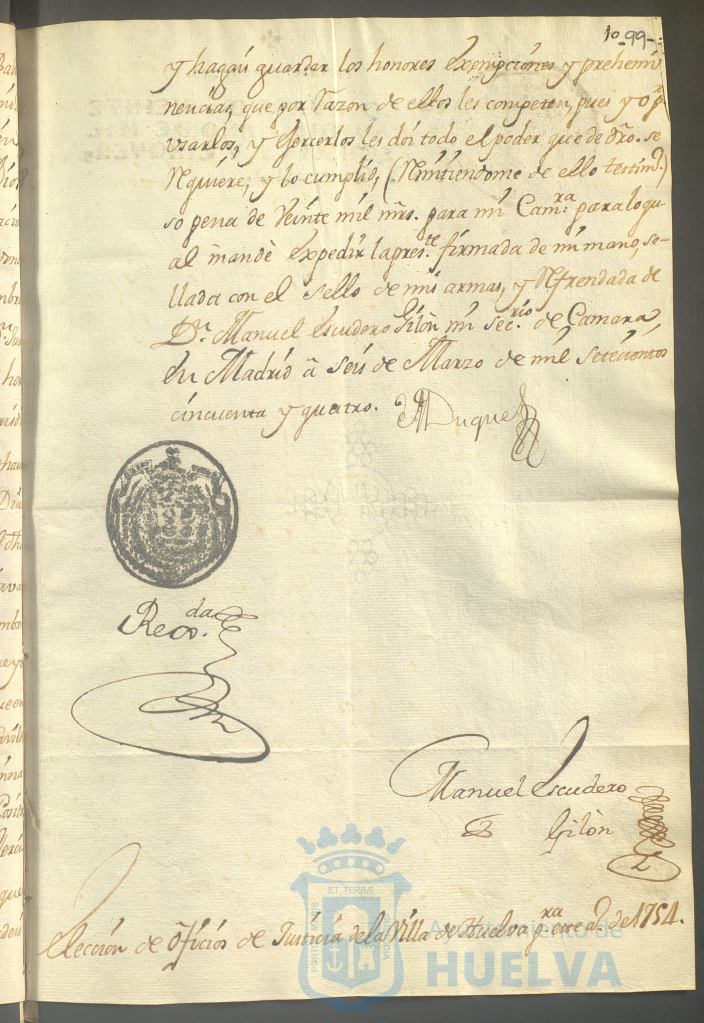 10 -99-
y hagan guardar los honores exempciones y prehemi
nencias, que por razon de ellos les competen, pues y o p.ª
usarlos, y exercerlos les doi todo el poder que de dro. se
requiere, y lo cumplid, (remitiendome de ello testim.º)
so pena de veinte mil mrs. para mi Cam.ra para lo qu
al mandè expedir la pres.te firmada de mi mano, se-
llada con el sello de mis armas, y refrendada de
D.n Manuel Escudero Gilòn mi sec.rio de Camara
En Madrid â seis de Marzo de mil setecientos
cinquenta y quatro.
el Duque
Reg.da
Manuel Escudero
Gilòn
Elección de Oficios de Justicia de la Villa de Huelva p.ra este a.º de 1754.
PORTUS MARIS
ET TERRÆ
Ayuntamiento de
HUELVA